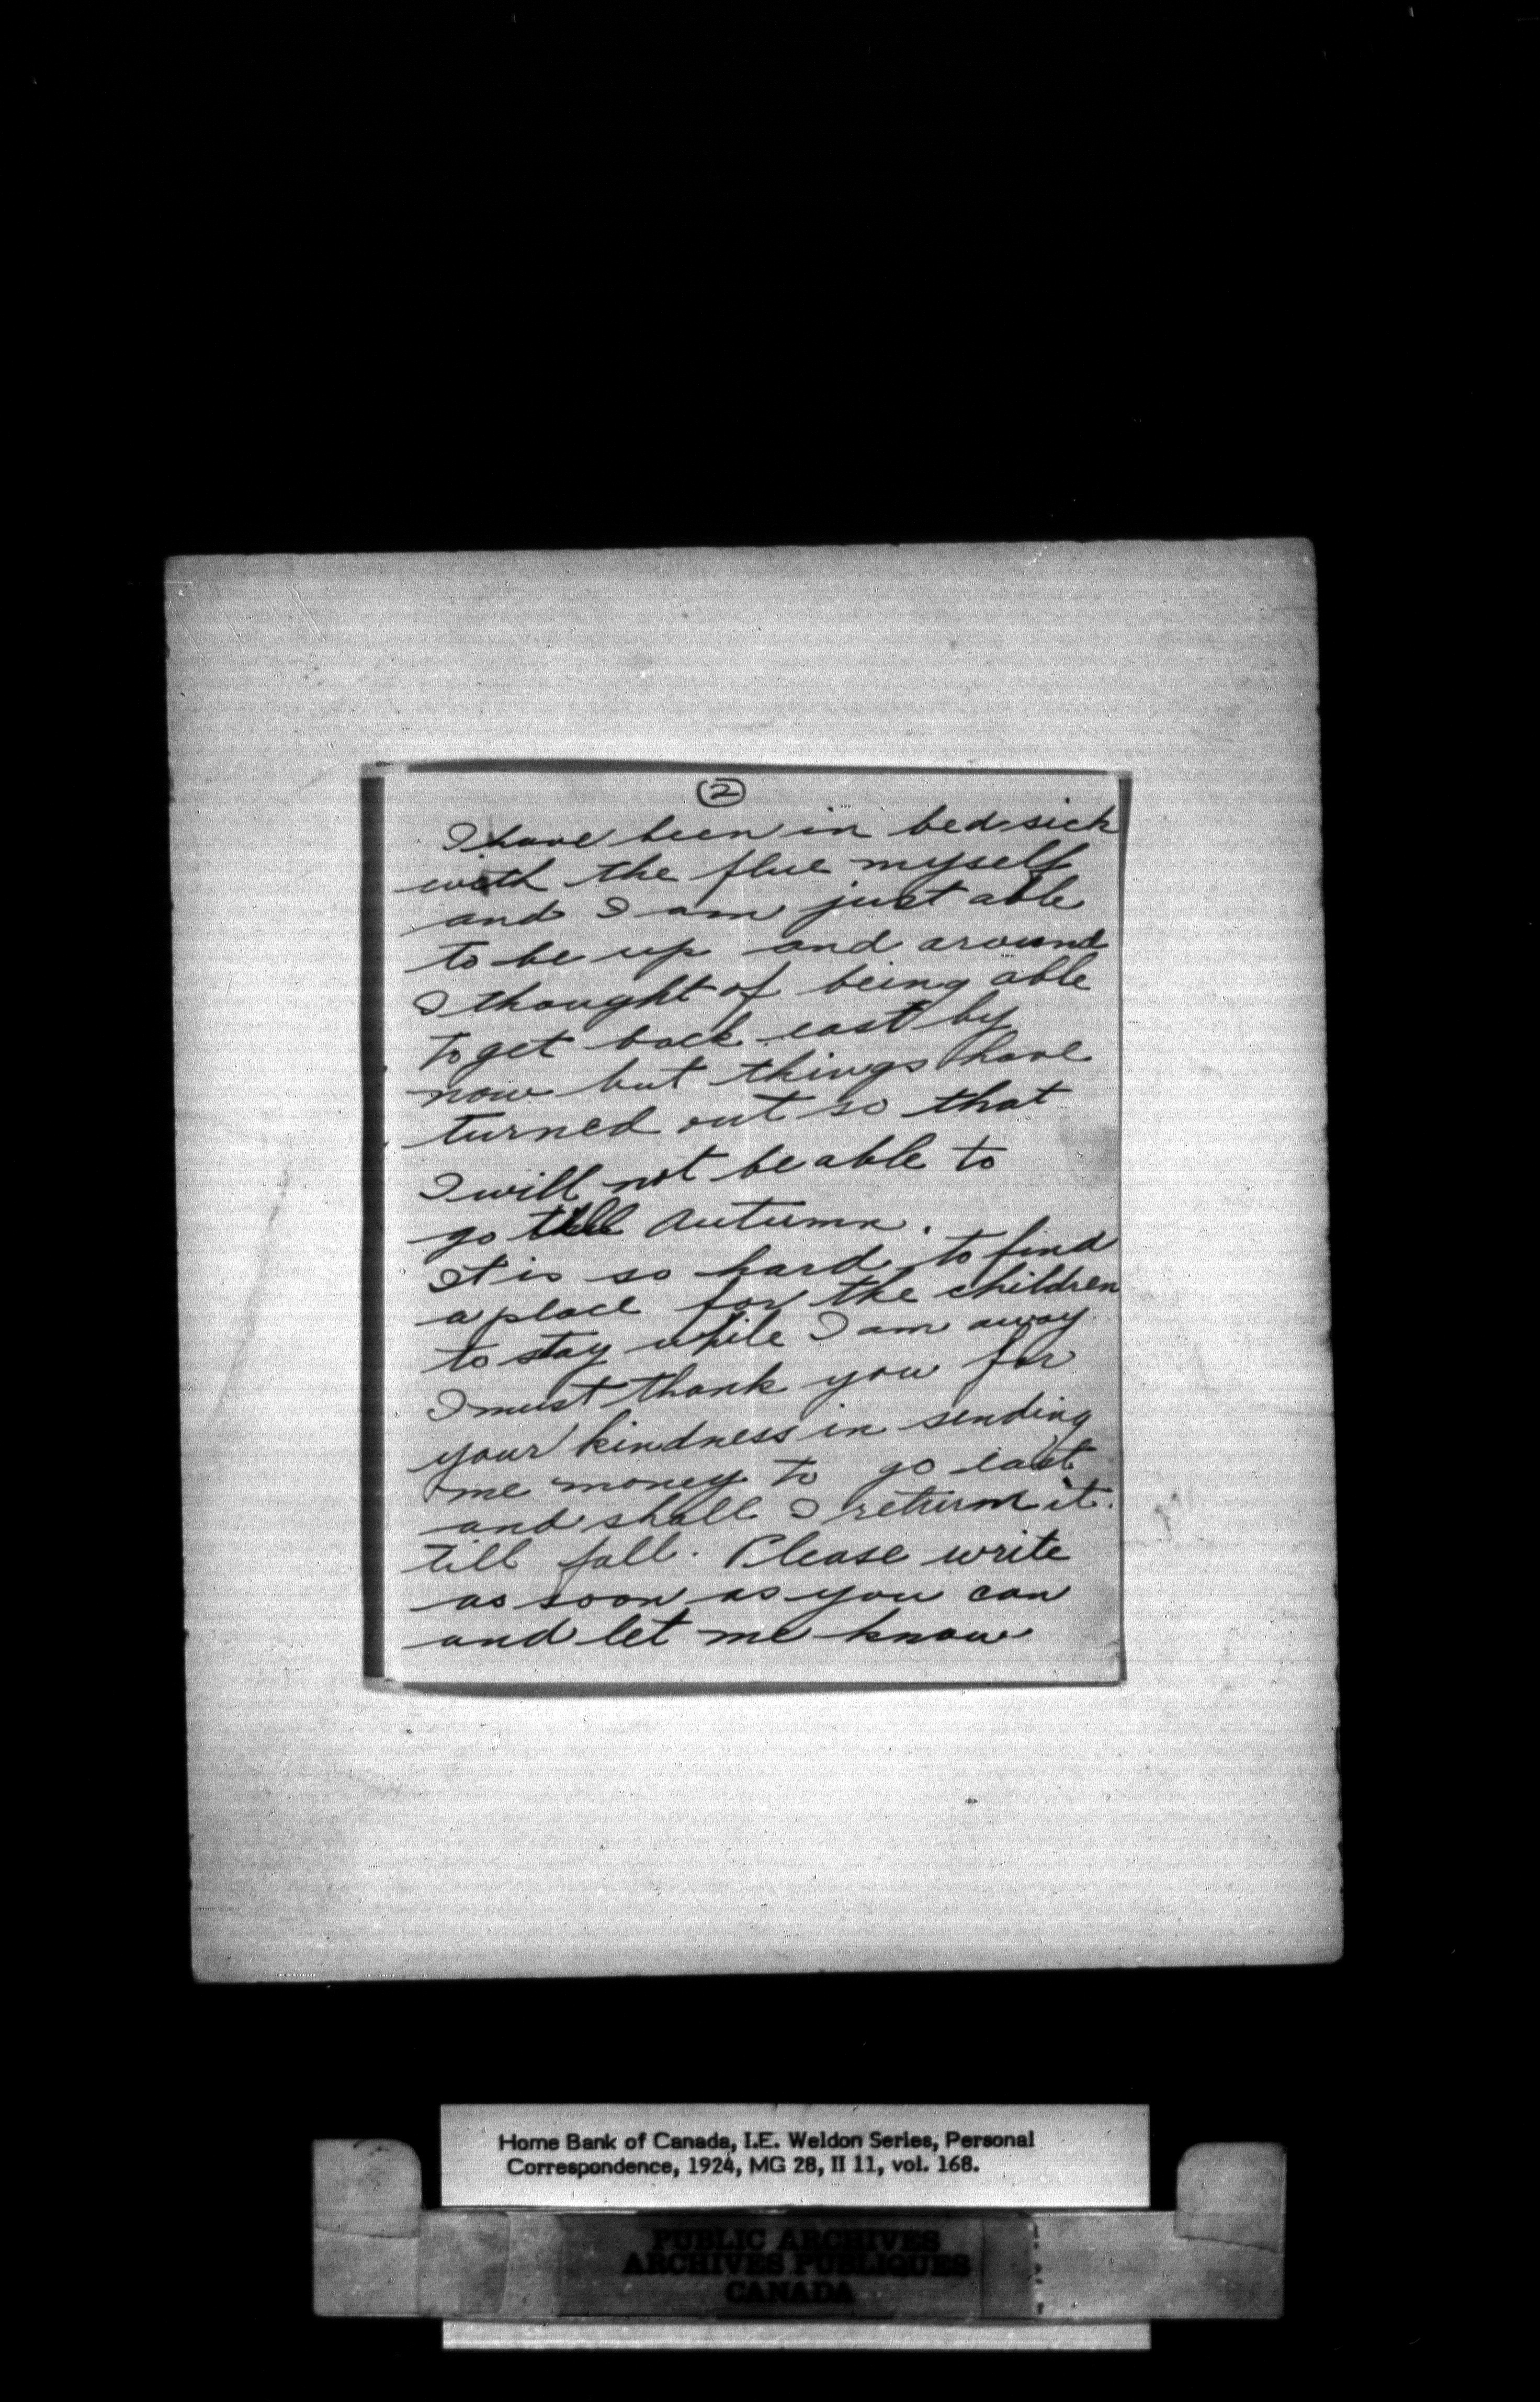 2
I have been in bed sick
with the flue myself
and I am just able
to be up and around
I thought of being able
to get back east by
now but things have
turned out so that
I will not be able to
go till Autumn.
It is so hard to find
a place for the children
to stay while I am away.
I must thank you for
your kindness in sending
me money to go east
and shall I return it.
till fall. Please write
as soon as you can
and let me know
Home Bank of Canada, I.E. Weldon Series, Personal
Correspondence, 1924, MG 28, II 11, vol. 168.
PUBLIC ARCHIVES
ARCHIVES PUBLIQUES
CANADA